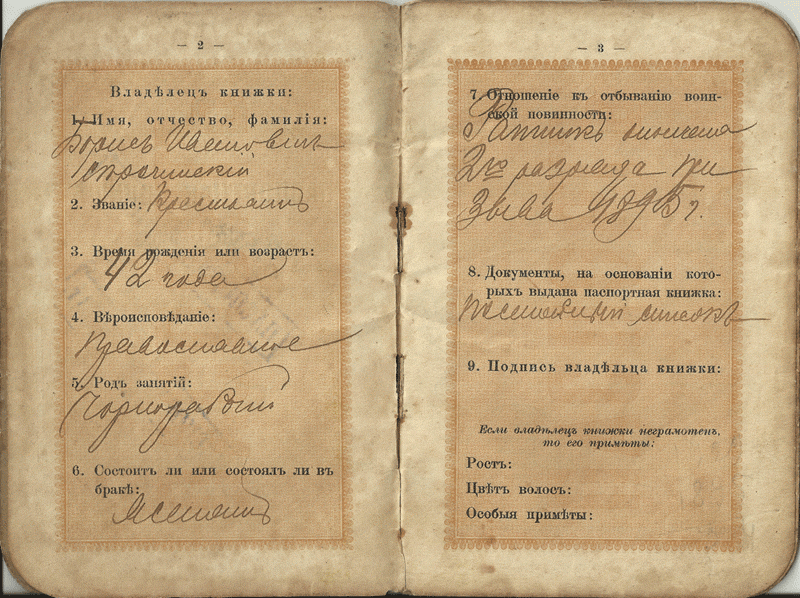 — 2 —
Владѣлецъ книжки:
1. Имя, отчество, фамилія:
Борисъ
2. Званіе: Крестьянинъ
3. Время рожденія или возрастъ:
42 года
4. Вѣроисповѣданіе:
Православное
5. Родъ занятій:
Чернорабочій
6. Состоитъ ли или состоялъ ли въ
бракѣ:
— 3 —
7. Отношеніе къ отбыванію воин-
ской повинности:
Ратникъ ополченія
2го разряда
1895 г.
8. Документы, на основаніи кото-
рыхъ выдана паспортная книжка:
списокъ
9. Подпись владѣльца книжки:
Если владѣлецъ книжки неграмотенъ,
то его примѣты:
Ростъ:
Цвѣтъ волосъ:
Особыя примѣты: